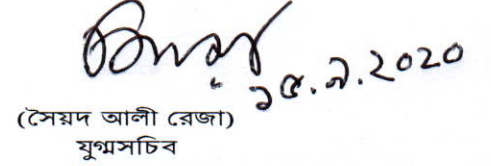 ১৫.৯.২০২০
(সৈয়দ আলী রেজা)
যুগ্মসচিব